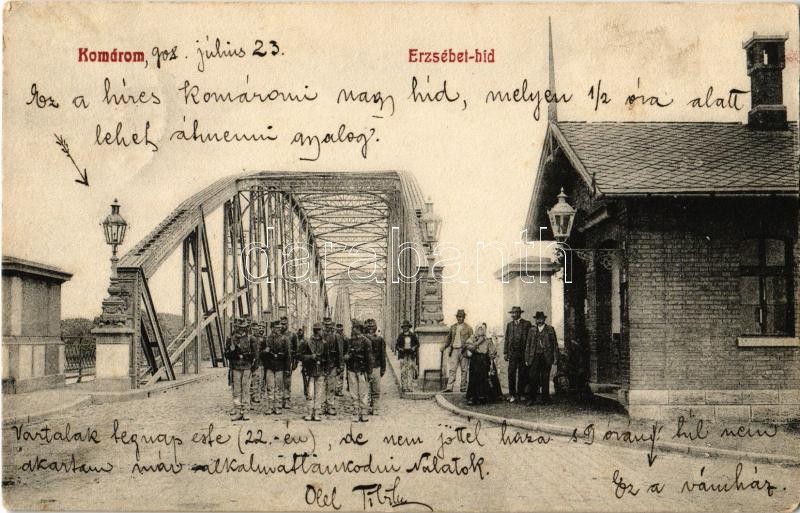 Komárom, 908. július 23.
Erzsébet-hid
Ez a híres komáromi nagy híd, melyen 1/2 óra alatt
lehet átmenni gyalog.
darabanth
Vártalak tegnap este (22.-én), de nem jöttél haza s 9 órán túl nem
akartam már alkalmatlankodni Nálatok.
Ölel Tibi
Ez a vámház.